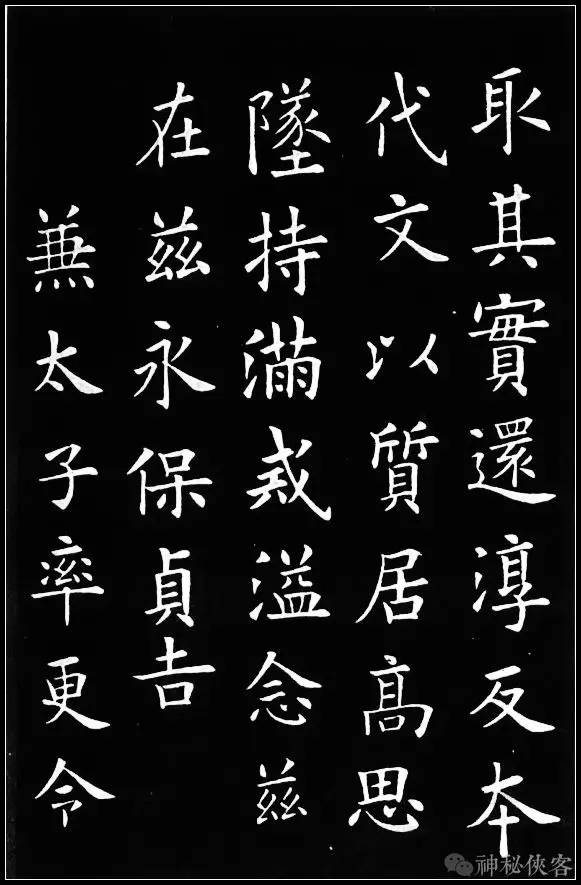 取其實還淳反本
代文以質居高思
墜持滿戒溢念茲
在茲永保貞吉
兼太子率更令
神秘俠客